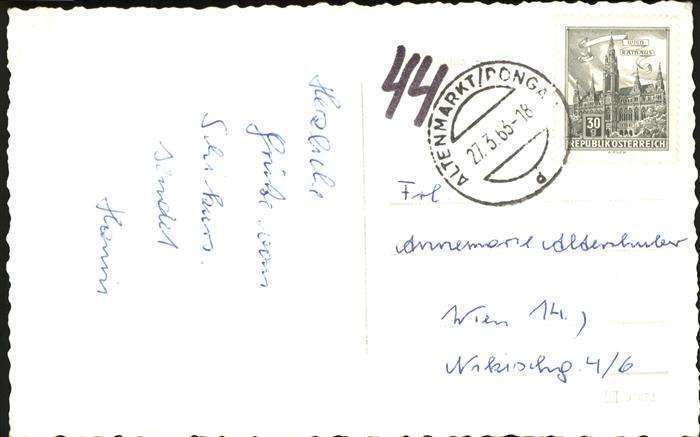 Herzliche
Grüße vom
Schikurs.
sendet
Hanni
44
ALTENMARKT/PONGA
27.3.66-18
WIEN
RATHAUS
30
REPUBLIK ÖSTERREICH
Frl
Annemarie
Wien 14.,
4/6